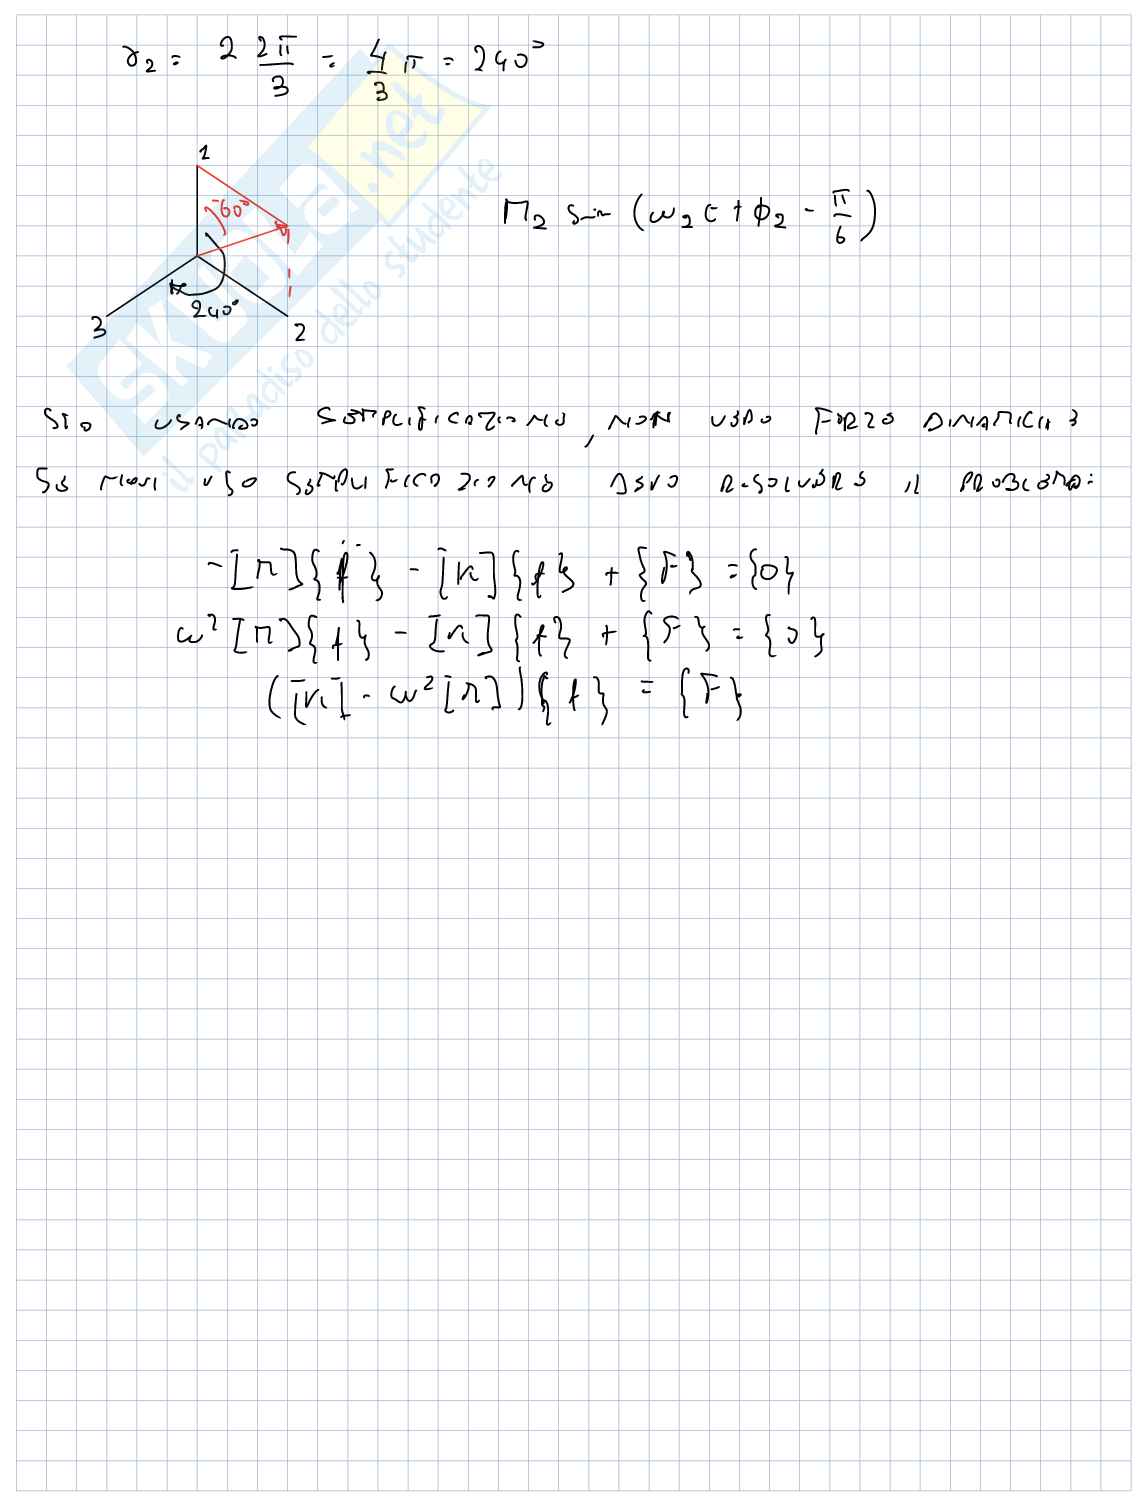 γ₂ = 2 2π/3 = 4/3 π = 240°
1
-60°
240°
3
2
M₂ sin (ω₂t + φ₂ - π/6)
STO USANDO SEMPLIFICAZIONE, NON VEDO FORZE DINAMICHE
SE NON USO SEMPLIFICAZIONE DEVO RISOLVERE IL PROBLEMA:
-[M]{f̈} - [K]{f} + {F} = {0}
ω²[M]{f} - [K]{f} + {F} = {0}
([K] - ω²[M]){f} = {F}
SKUOLA.net
il paradiso dello studente